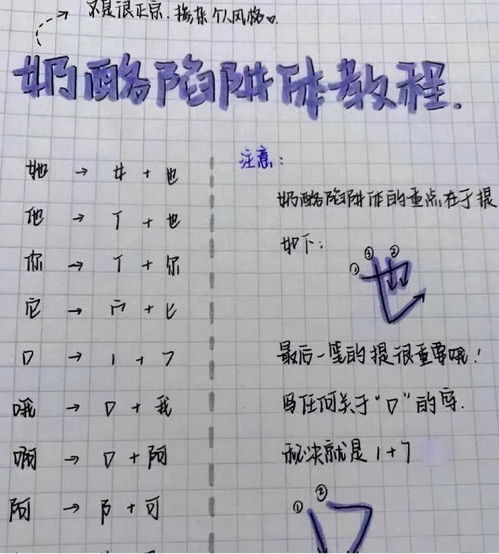 不是很正宗,掺杂个人风格。
奶酪陷阱体教程.
她 → 女 + 也
他 → 亻 + 也
你 → 亻 + 尔
它 → 宀 + 匕
口 → 1 + 7
哦 → 口 + 我
啊 → 口 + 阿
阿 → 阝 + 可
注意:
奶酪陷阱体的重点在于提
如下:
① ② ③
最后一笔的提很重要哦!
写任何关于“口”的字.
秘决就是 1+7
① ②